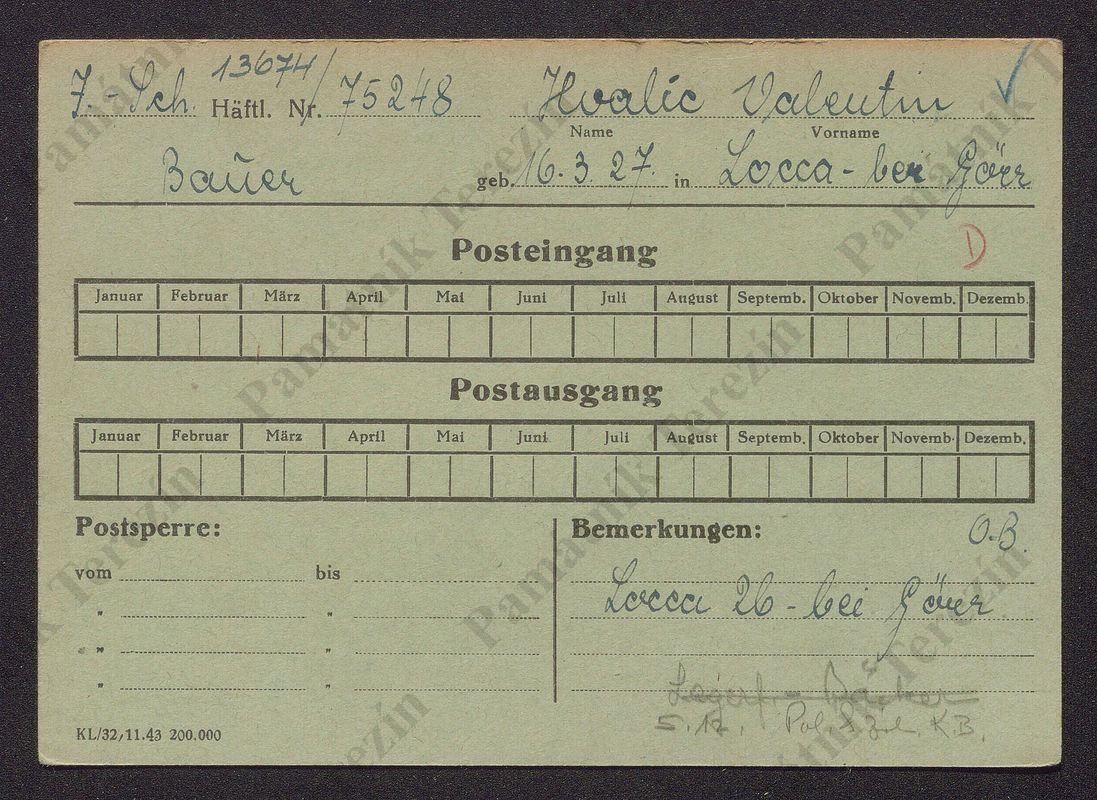 J-Sch. Häftl. Nr. 13674/ 75248 Hvalic Valentin
Name Vorname
Bauer geb. 16.3.27. in Locca - bei Görz
Posteingang
D
Januar Februar März April Mai Juni Juli August Septemb. Oktober Novemb. Dezemb.
Postausgang
Januar Februar März April Mai Juni Juli August Septemb. Oktober Novemb. Dezemb.
Postsperre: Bemerkungen: O.B.
vom bis
" "
" "
" "
Locca 26 - bei Görz
5.12. K.B.
KL/32,11.43 200.000
Památník Terezín